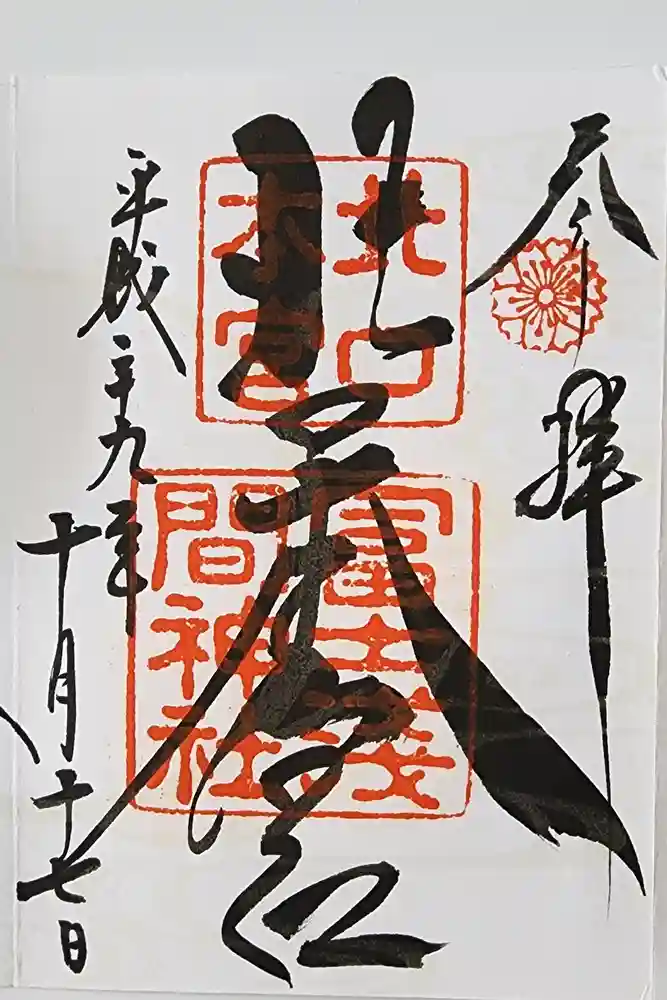 奉拝
北口本宮
北口
本宮
冨士淺
間神社
平成二十九年
十月十七日